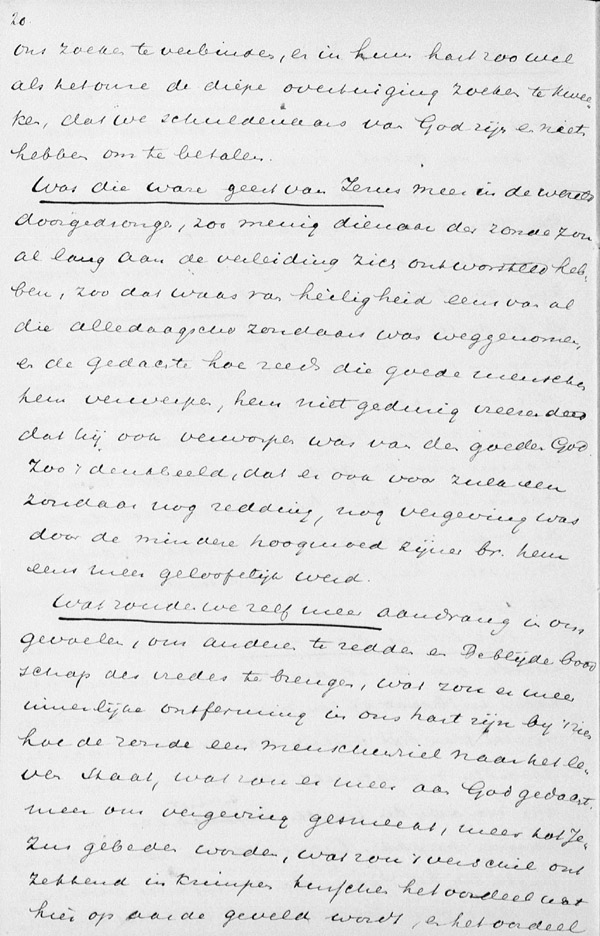 20.
ons zoeken te verbinden, en in hun hart zoo wel
als het onze de diepe overtuiging zoeken te kwee-
ken, dat we schuldenaars van God zijn en niets
hebben om te betalen.
Was die ware geest van Jezus meer in de wereld
doorgedrongen, zoo menig dienaar der zonde zou
al lang aan de verleiding zich ontworsteld heb-
ben, zoo dat waas van heiligheid eens van al
die alledaagsche zondaars was weggenomen,
en de gedachte hoe reeds die goede menschen
hem verwerpen, hem niet gedurig vreezen deed
dat hij ook verworpen was van den goeden God.
Zoo 't denkbeeld, dat er ook voor zulk een
zondaar nog redding, nog vergeving was
door de mindere hoogmoed zijner br. hem
eens meer geloofelijk werd.
Wat zouden we zelf meer aandrang in ons
gevoelen, om anderen te redden en De blijde bood
schap des vredes te brengen, wat zou er meer
innerlijke ontferming in ons hart zijn by 't zien
hoe de zonde een menschenziel naar het le-
ven staat, wat zou er meer aan God gedankt,
meer om vergeving gesmeekt, meer tot Je-
zus gebeden worden, wat zou 't verschil ont
zettend inkrimpen tusschen het oordeel wat
hier op aarde geveld wordt, en het oordeel